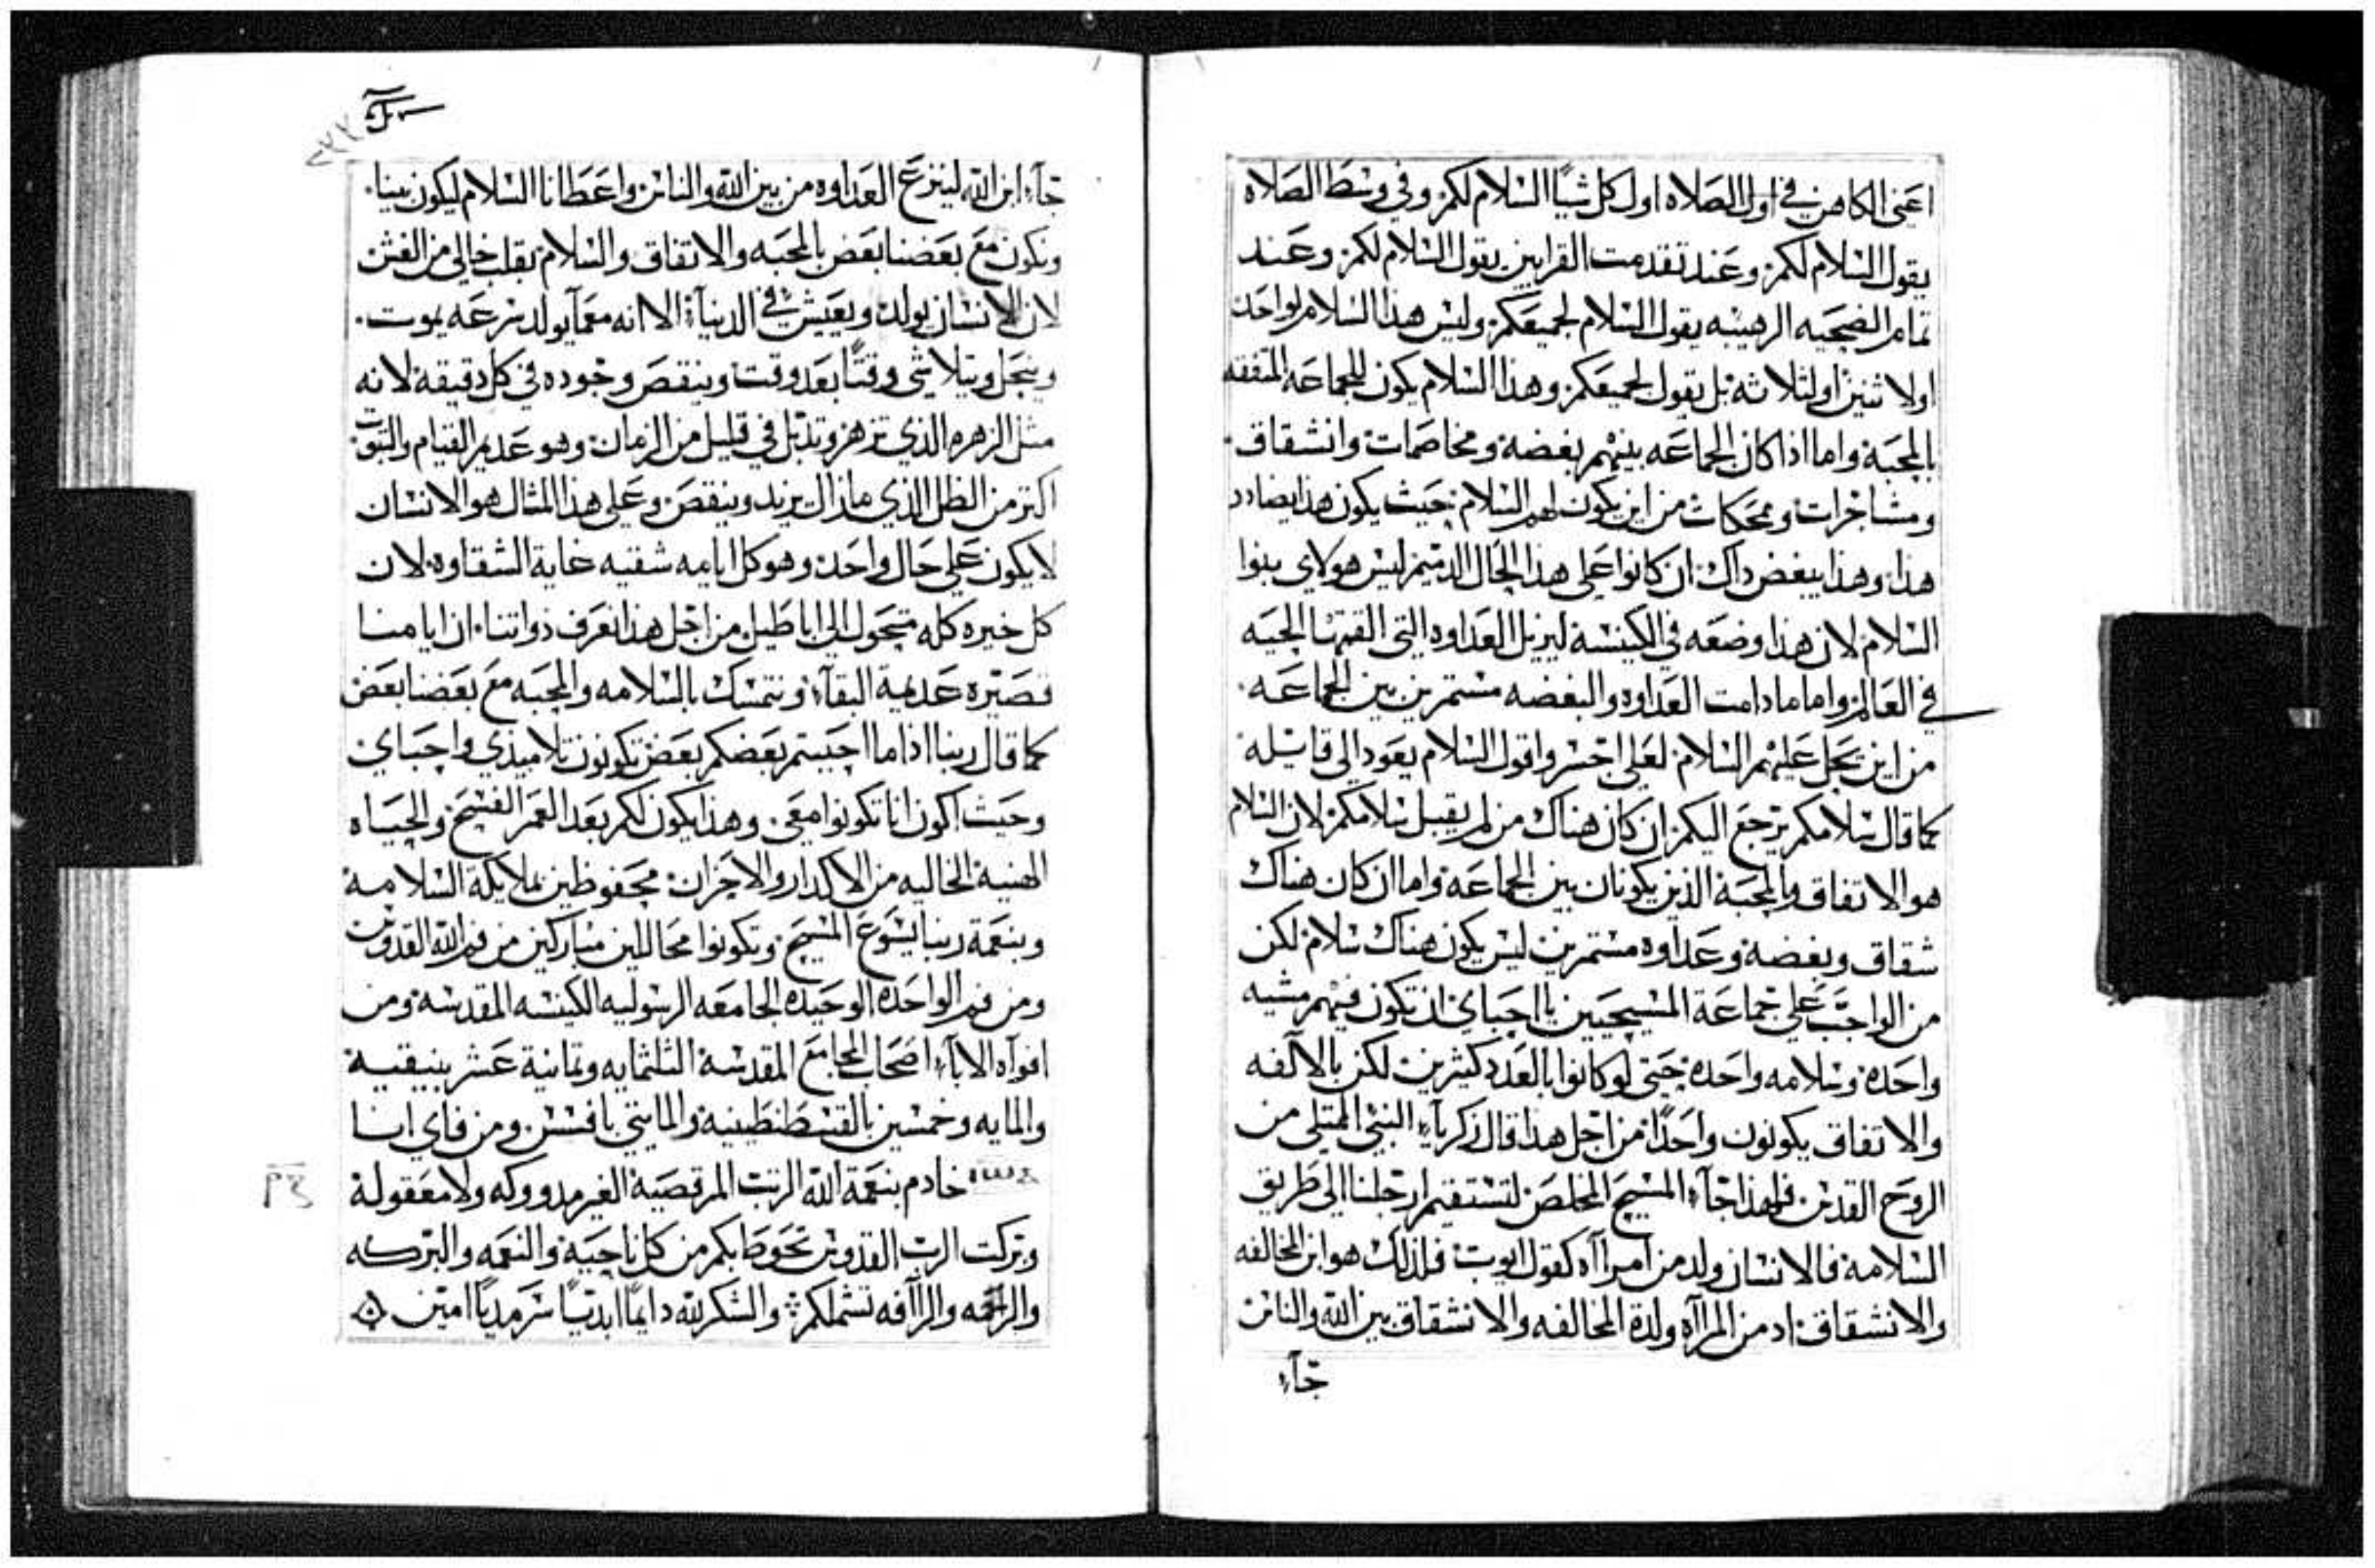 اعني الكاهن في اول الصلاه اول كل شيًا السلام لكم وفي وسط الصلاه
يقول السلام لكم وعند تقدمت القرابين يقول السلام لكم وعند
تمام الضحيه الرهيبه يقول السلام لجميعكم وليس هذا السلام لواحد
اولاثنين اولثلاثه بل يقول لجميعكم وهذا السلام يكون للجماعه المتفقه
بالمحبه واما اذا كان الجماعه بينهم بغضه ومخاصمات وانشقاق
ومشاجرات ومحكات من اين يكون لهم السلام حيث يكون هذا يضادد
هذا وهذا يبغض داك ان كانوا على هذا الحال الدميم ليس هولاي بنوا
السلام لان هذا وضعه في الكنيسة ليزيل العداوه التي القتها الحيه
في العالم واما مادامت العداوه والبغضه مستمرين بين الجماعه
من اين يحل عليهم السلام لعلي اجسر واقول السلام يعود الي قايله
كما قال سلامكم يرجع اليكم ان كان هناك من لم يقبل سلامكم لان السلام
هو الاتفاق والمحبة الذين يكونان بين الجماعه واما ان كان هناك
شقاق وبغضة وعداوه مستمرين ليس يكون هناك سلام لكن
من الواجب على جماعة المسيحيين يا احباي ان تكون فيهم مشيه
واحده وسلامه واحده حتى لو كانوا بالعدد كثيرين لكن بالالفه
والاتفاق يكونون واحدًا من اجل هذا قال زكرياء النبي الممتلي من
الروح القدس فلهذا جآء المسيح المخلص لتستقيم ارجلنا الي طريق
السلامة فالانسان ولد من امراآه كقول ايوب فلذلك هو ابن المخالفه
والانشقاق اد من المراآه ولدة المخالفه والانشقاق بين الله والناس
جآء
جآء ابن الله لينزع العداوه من بين الله والناس واعطانا السلام ليكون بيننا
ونكون مع بعضنا بعض بالمحبه والاتفاق والسلام بقلب خالي من الغش
لان الانسان يولد ويعيش في الدنيآء الا انه معمآ يولد بسرعه يموت
وينحل ويتلاشي وقتًا بعد وقت وينقص وجوده في كل دقيقة لانه
مثل الزهره الذي تزهر وتذبل في قليل من الزمان وهو عديم القيام والتبوت
اكتر من الظل الذي مازال يزيد وينقص وعلى هذا المثال هو الانسان
لايكون على حال واحد وهو كل ايامه شقيه غاية الشقاوه لان
كل خيره كله متحول الي اباطيل من اجل هذا نعرف ذواتنا ان ايامنا
قصيره عديمة البقآء ونتمسك بالسلامه والمحبه مع بعضنا بعض
كما قال ربنا اذا ما احببتم بعضكم بعض تكونون تلاميذي واحباي
وحيث اكون انا تكونوا معي وهذا يكون لكم بعد العمر الفسيح والحياه
الهنية الخاليه من الاكدار والاحزان محفوظين بملايكة السلامة
وبنعمة ربنا يسوع المسيح وتكونوا محاللين مباركين من فم الله القدوس
ومن فم الواحده الوحيده الجامعه الرسوليه الكنيسه المقدسه ومن
افواه الاباء اصحاب المجامع المقدسة التلتمايه وتمانية عشر بنيقية
والمايه وخمسين بالقسطنطينية والمايتي بافسس ومن فاي انا
خادم بنعمة الله الرتب المرقصية الغير مدروكه ولا معقولة
وبركت الرب القدوس تحوط بكم من كل ناحية والنعمه والبركه
والرحمه والراآفه تشملكم والشكر لله دايمًا ابديًا سرمديًا امين